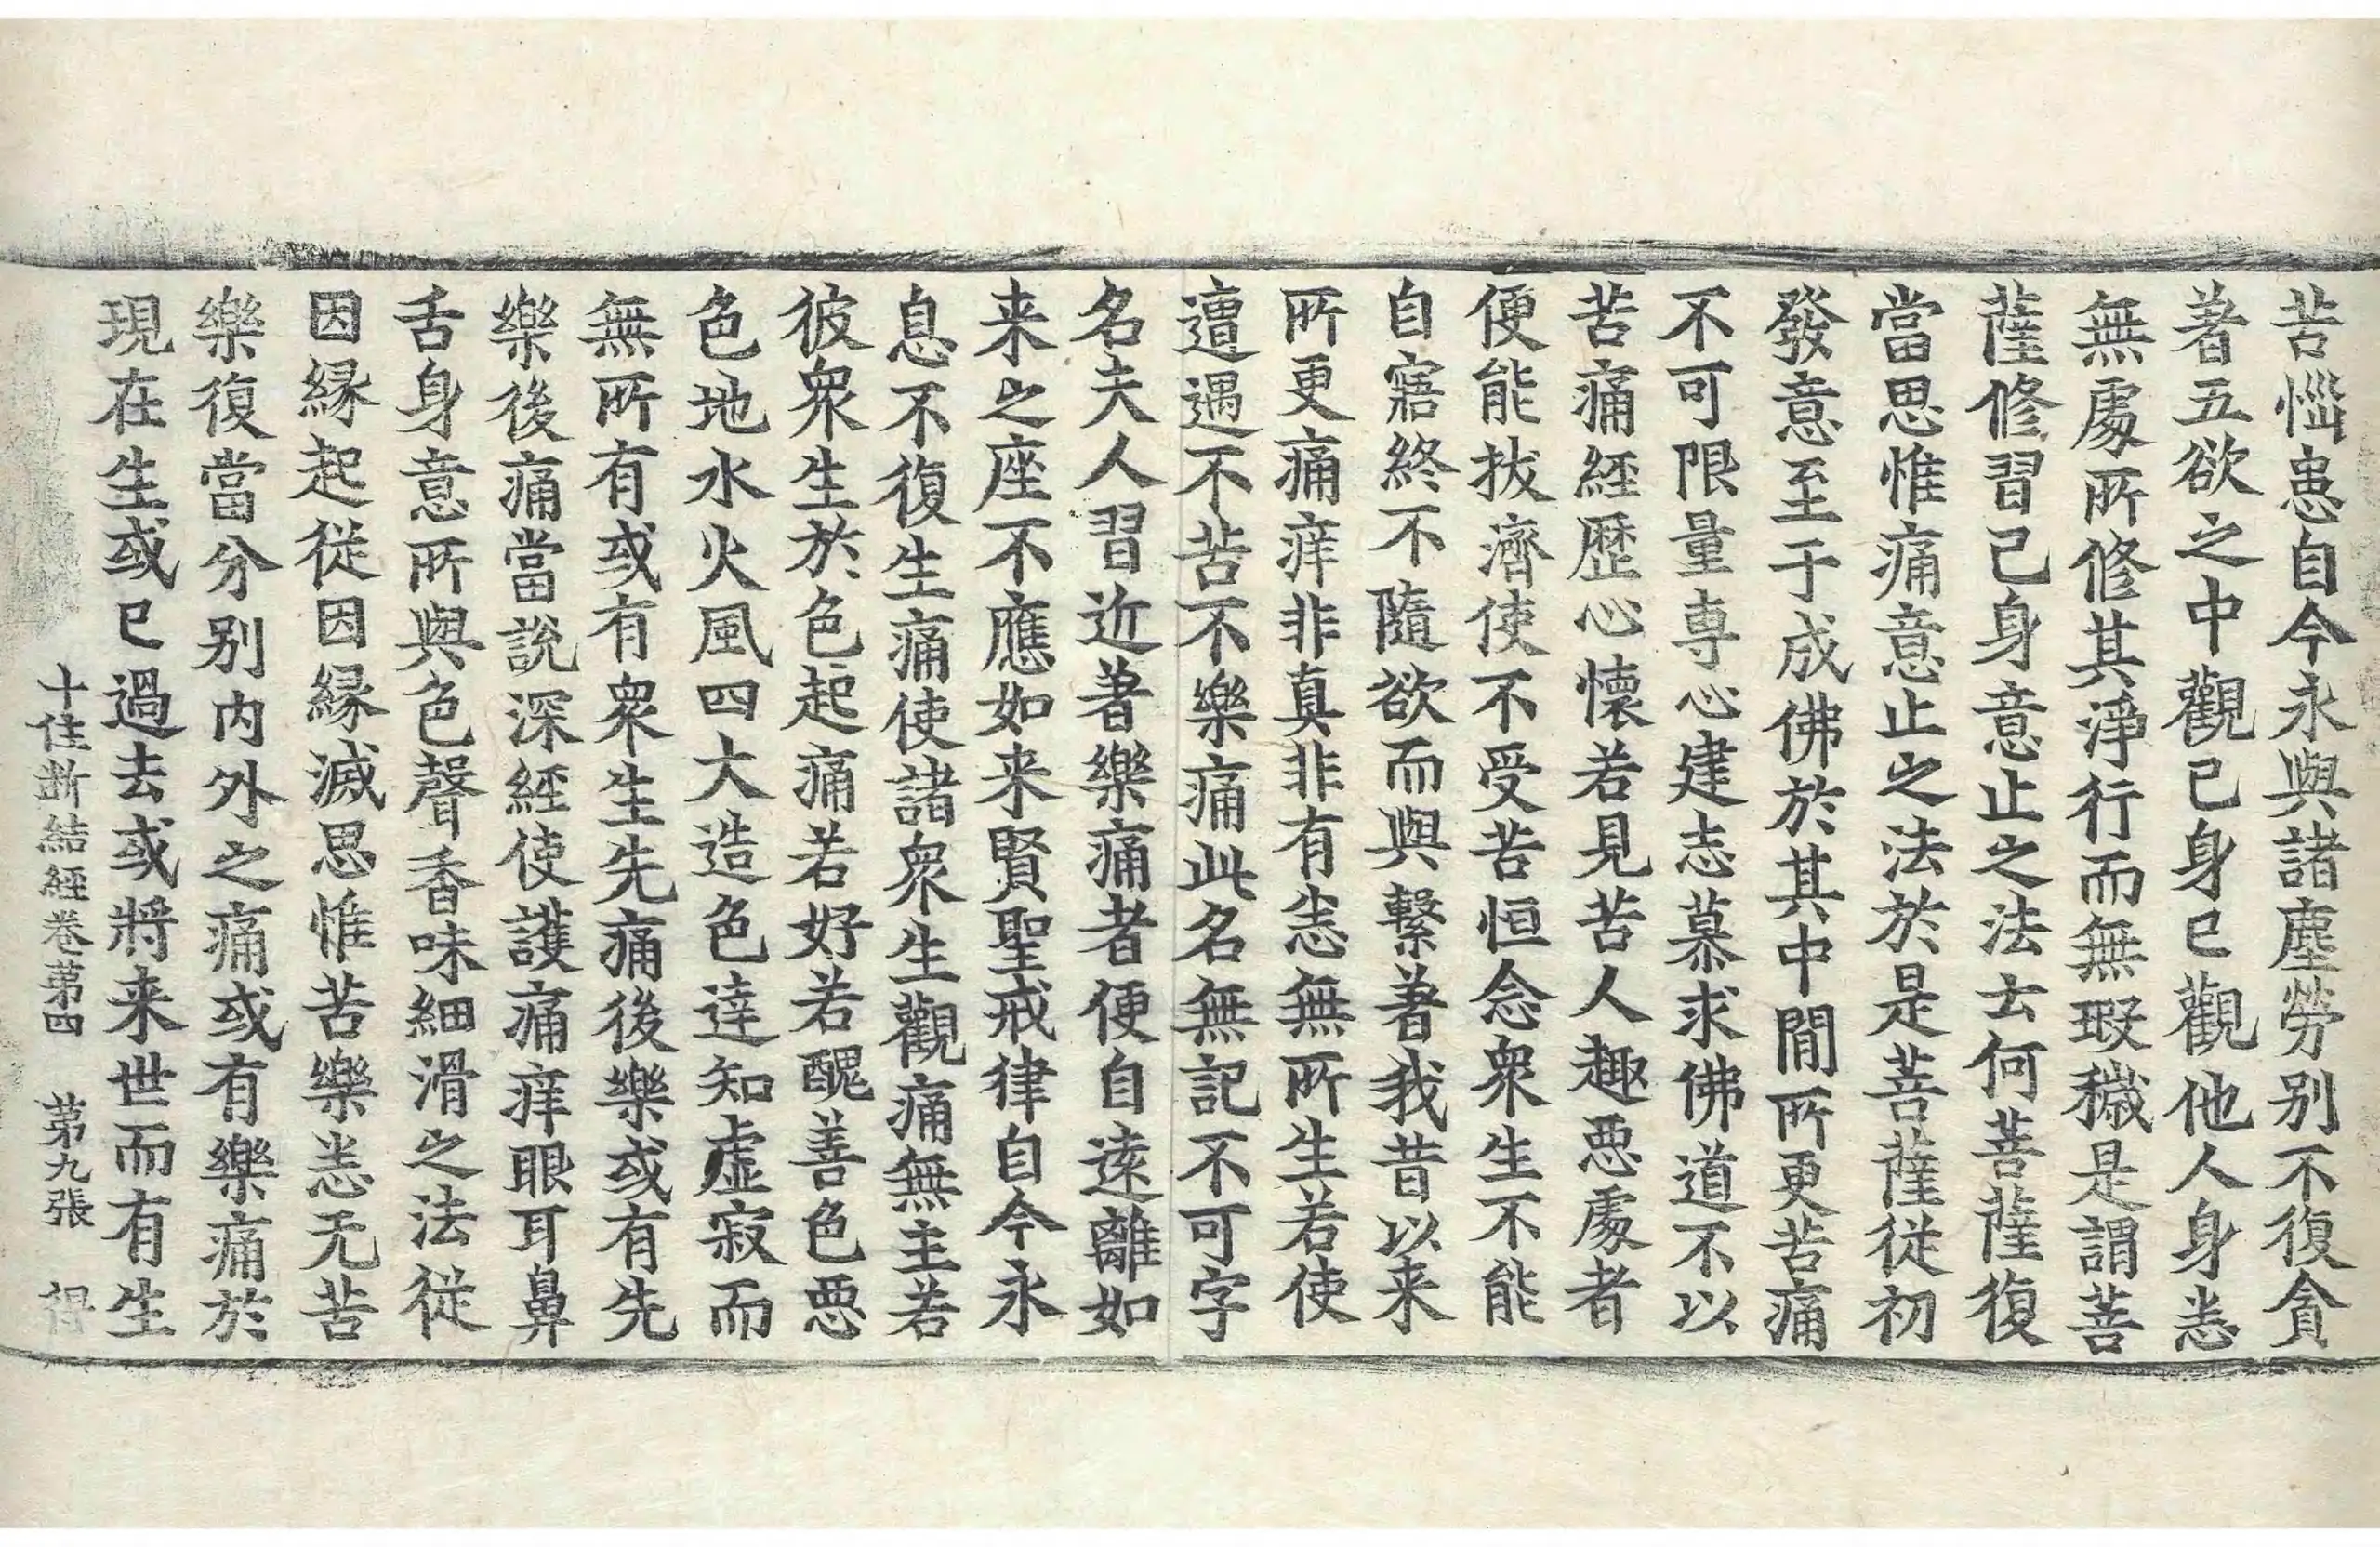 苦惱患自今永與諸塵勞別不復貪
著五欲之中觀已身已觀他人身恙
無處所修其淨行而無瑕穢是謂菩
薩修習己身意止之法云何菩薩復
當思惟痛意止之法於是菩薩從初
發意至于成佛於其中間所更苦痛
不可限量專心建志慕求佛道不以
苦痛經歷心懷若見苦人趣惡處者
便能拔濟使不受苦恒念衆生不能
自寤終不隨欲而與繫著我昔以来
所更痛痒非真非有恙無所生若使
遭遇不苦不樂痛此名無記不可字
名夫人習近著樂痛者便自遠離如
来之座不應如来賢聖戒律自今永
息不復生痛使諸衆生觀痛無主若
彼衆生於色起痛若好若醜善色惡
色地水火風四大造色達知虛寂而
無所有或有衆生先痛後樂或有先
樂後痛當說深經使護痛痒眼耳鼻
舌身意所與色聲香味細滑之法從
因緣起從因緣滅思惟苦樂恙无苦
樂復當分別内外之痛或有樂痛於
現在生或已過去或將来世而有生
十住斷結經卷第四 第九張 得